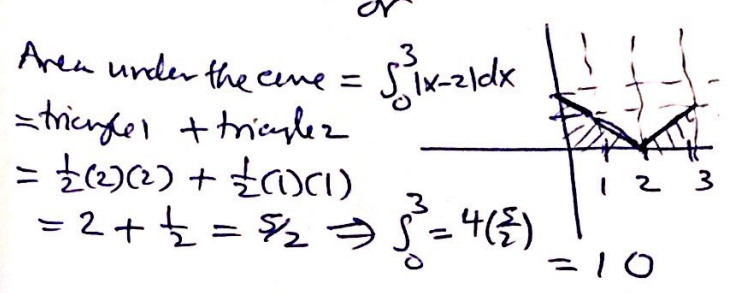 or
Area under the curve = ∫₀³ |x-2|dx
= triangle 1 + triangle 2
= ½(2)(2) + ½(1)(1)
= 2 + ½ = 5/2 ⇒ ∫₀³ = 4(5/2)
= 10
1 2 3